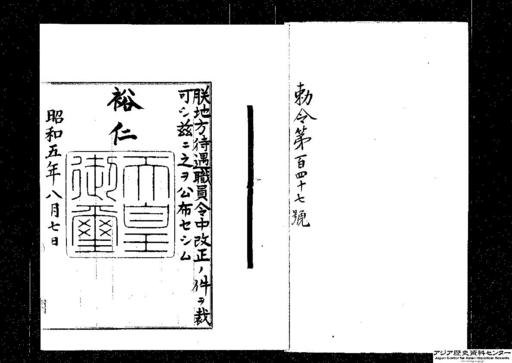 勅令第百四十七號
朕地方待遇職員令中改正ノ件ヲ裁
可シ玆ニ之ヲ公布セシム
裕仁
天皇
御璽
昭和五年八月七日
アジア歴史資料センター
Japan Center for Asian Historical Records